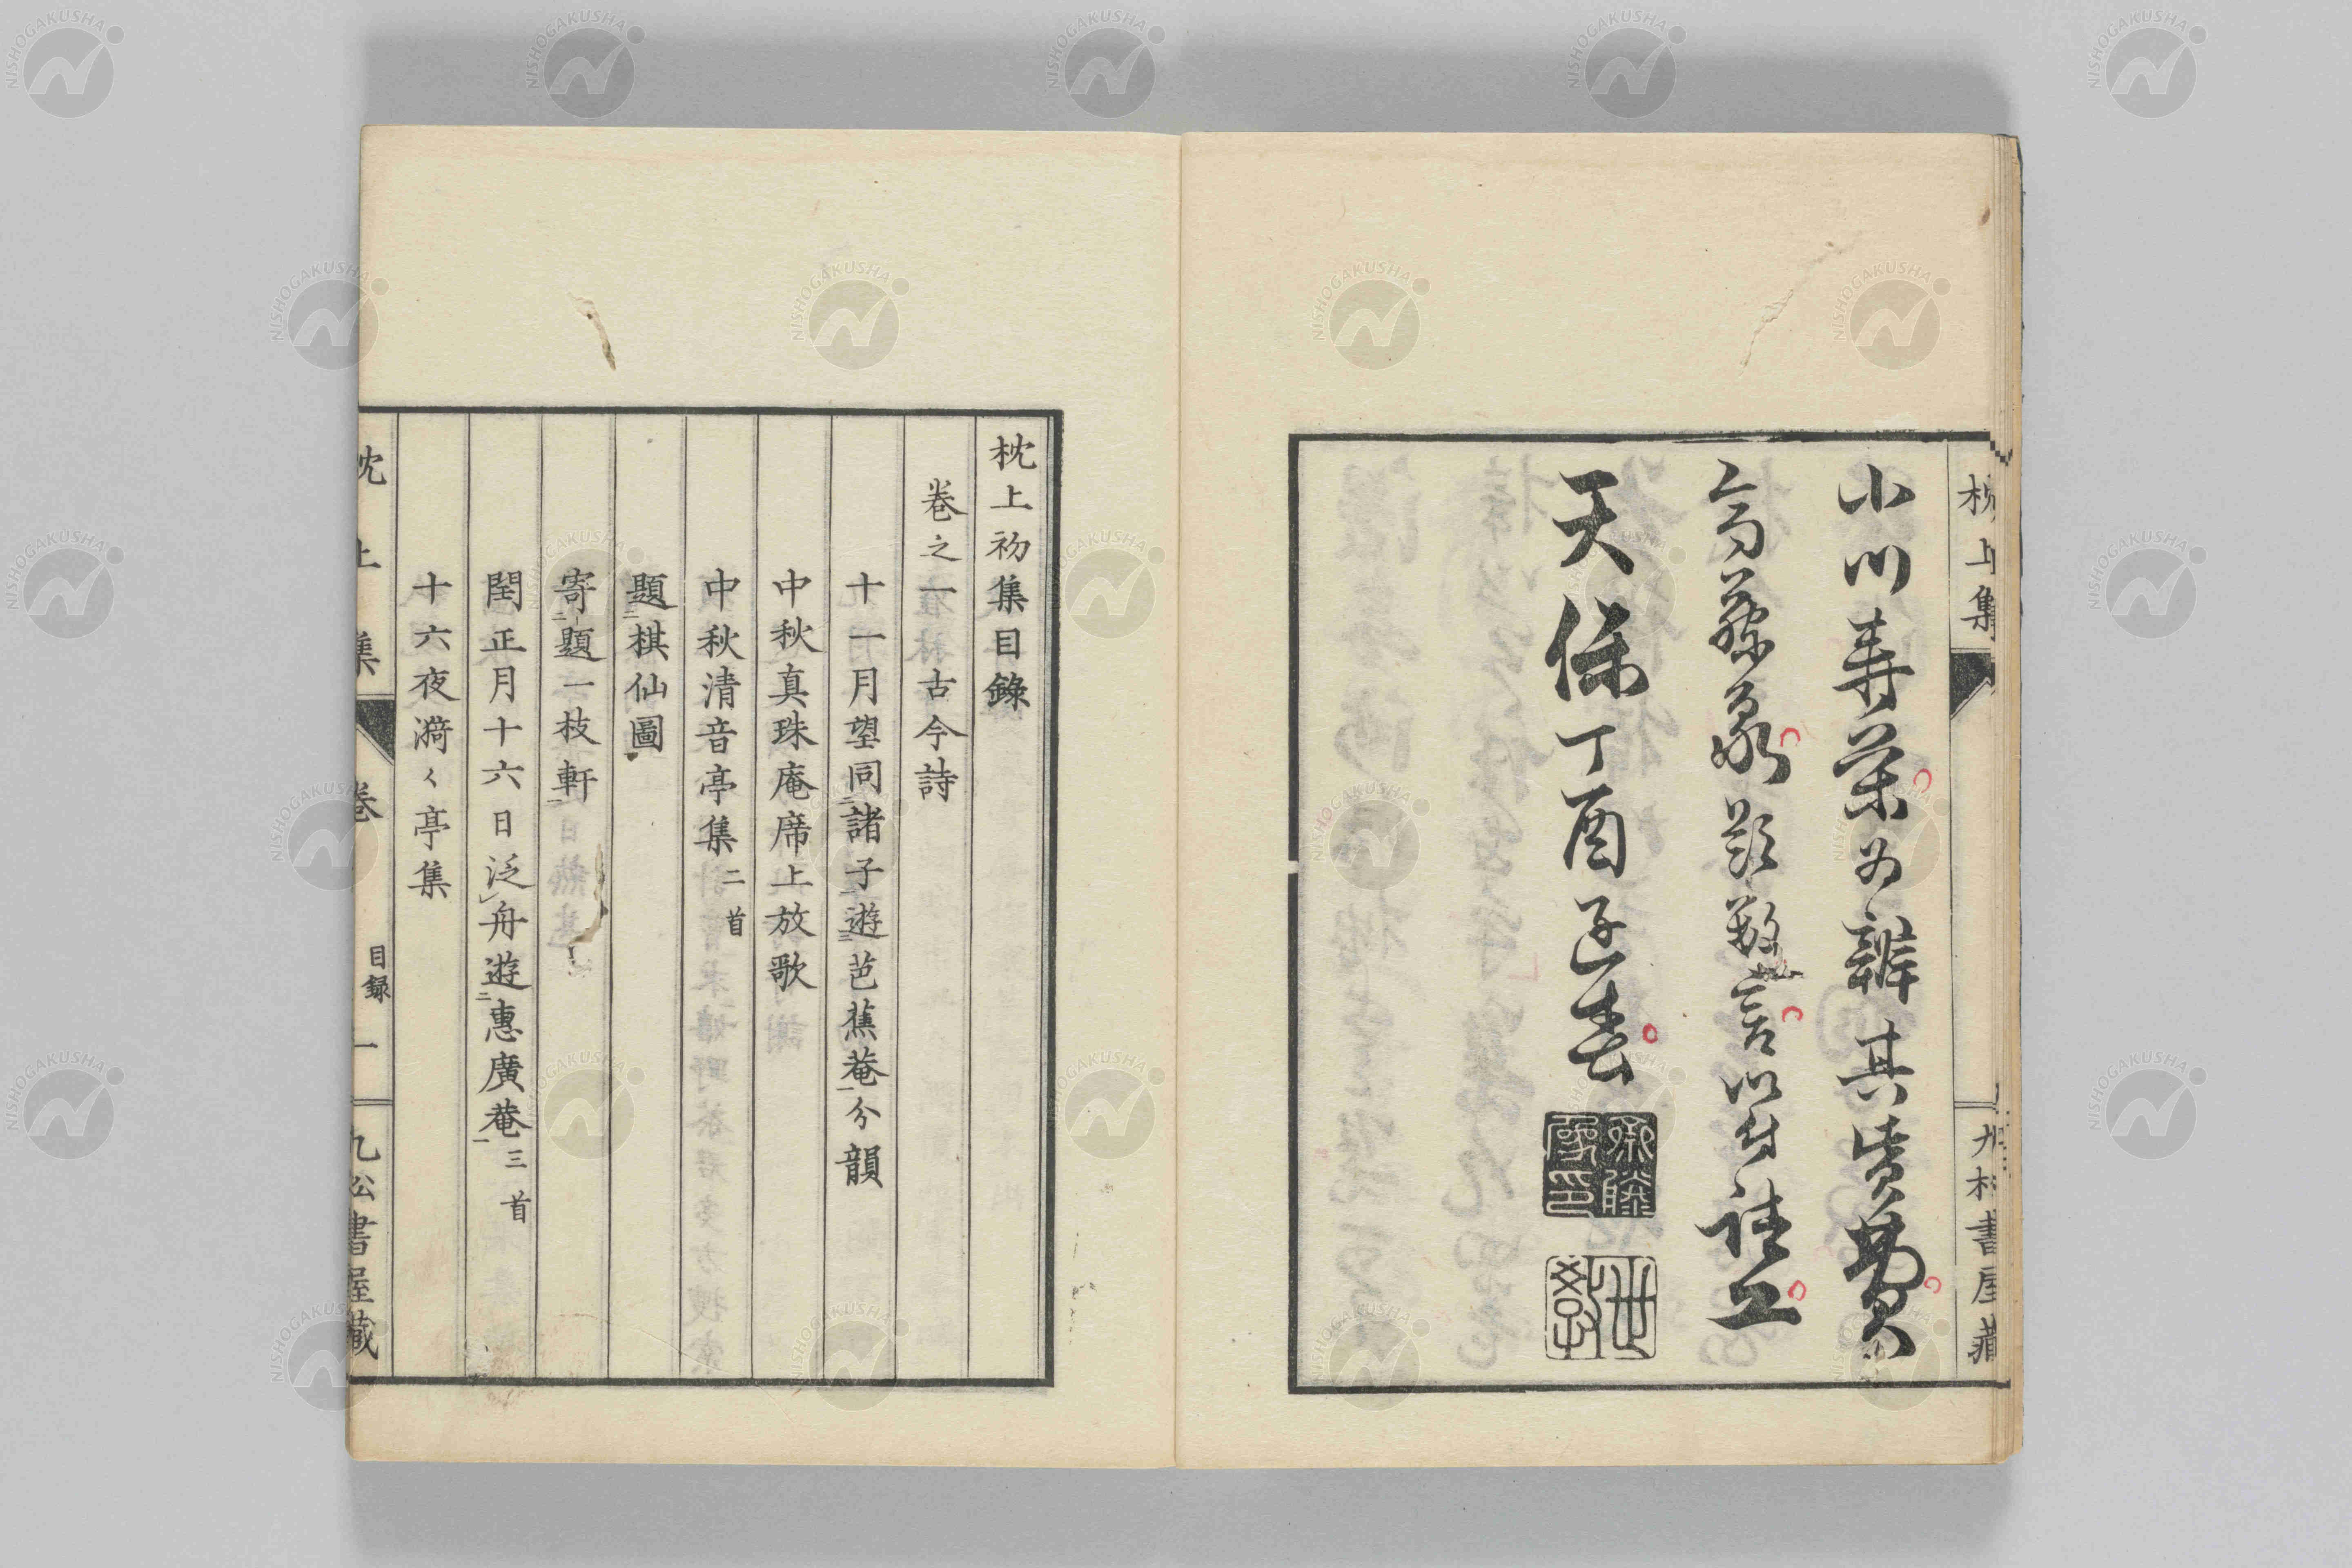 枕上集
九松書屋藏
小川壽葉為辨其資費
天保丁酉孟春
枕上初集目錄
卷之一 古今詩
十一月望同諸子遊芭蕉菴分韻
中秋真珠庵席上放歌
中秋清音亭集 二首
題棋仙圖
寄題一枝軒
閏正月十六日泛舟遊惠廣菴 三首
十六夜漪〻亭集
枕上集 卷 目録 一 九松書屋藏
NISHOGAKUSHA